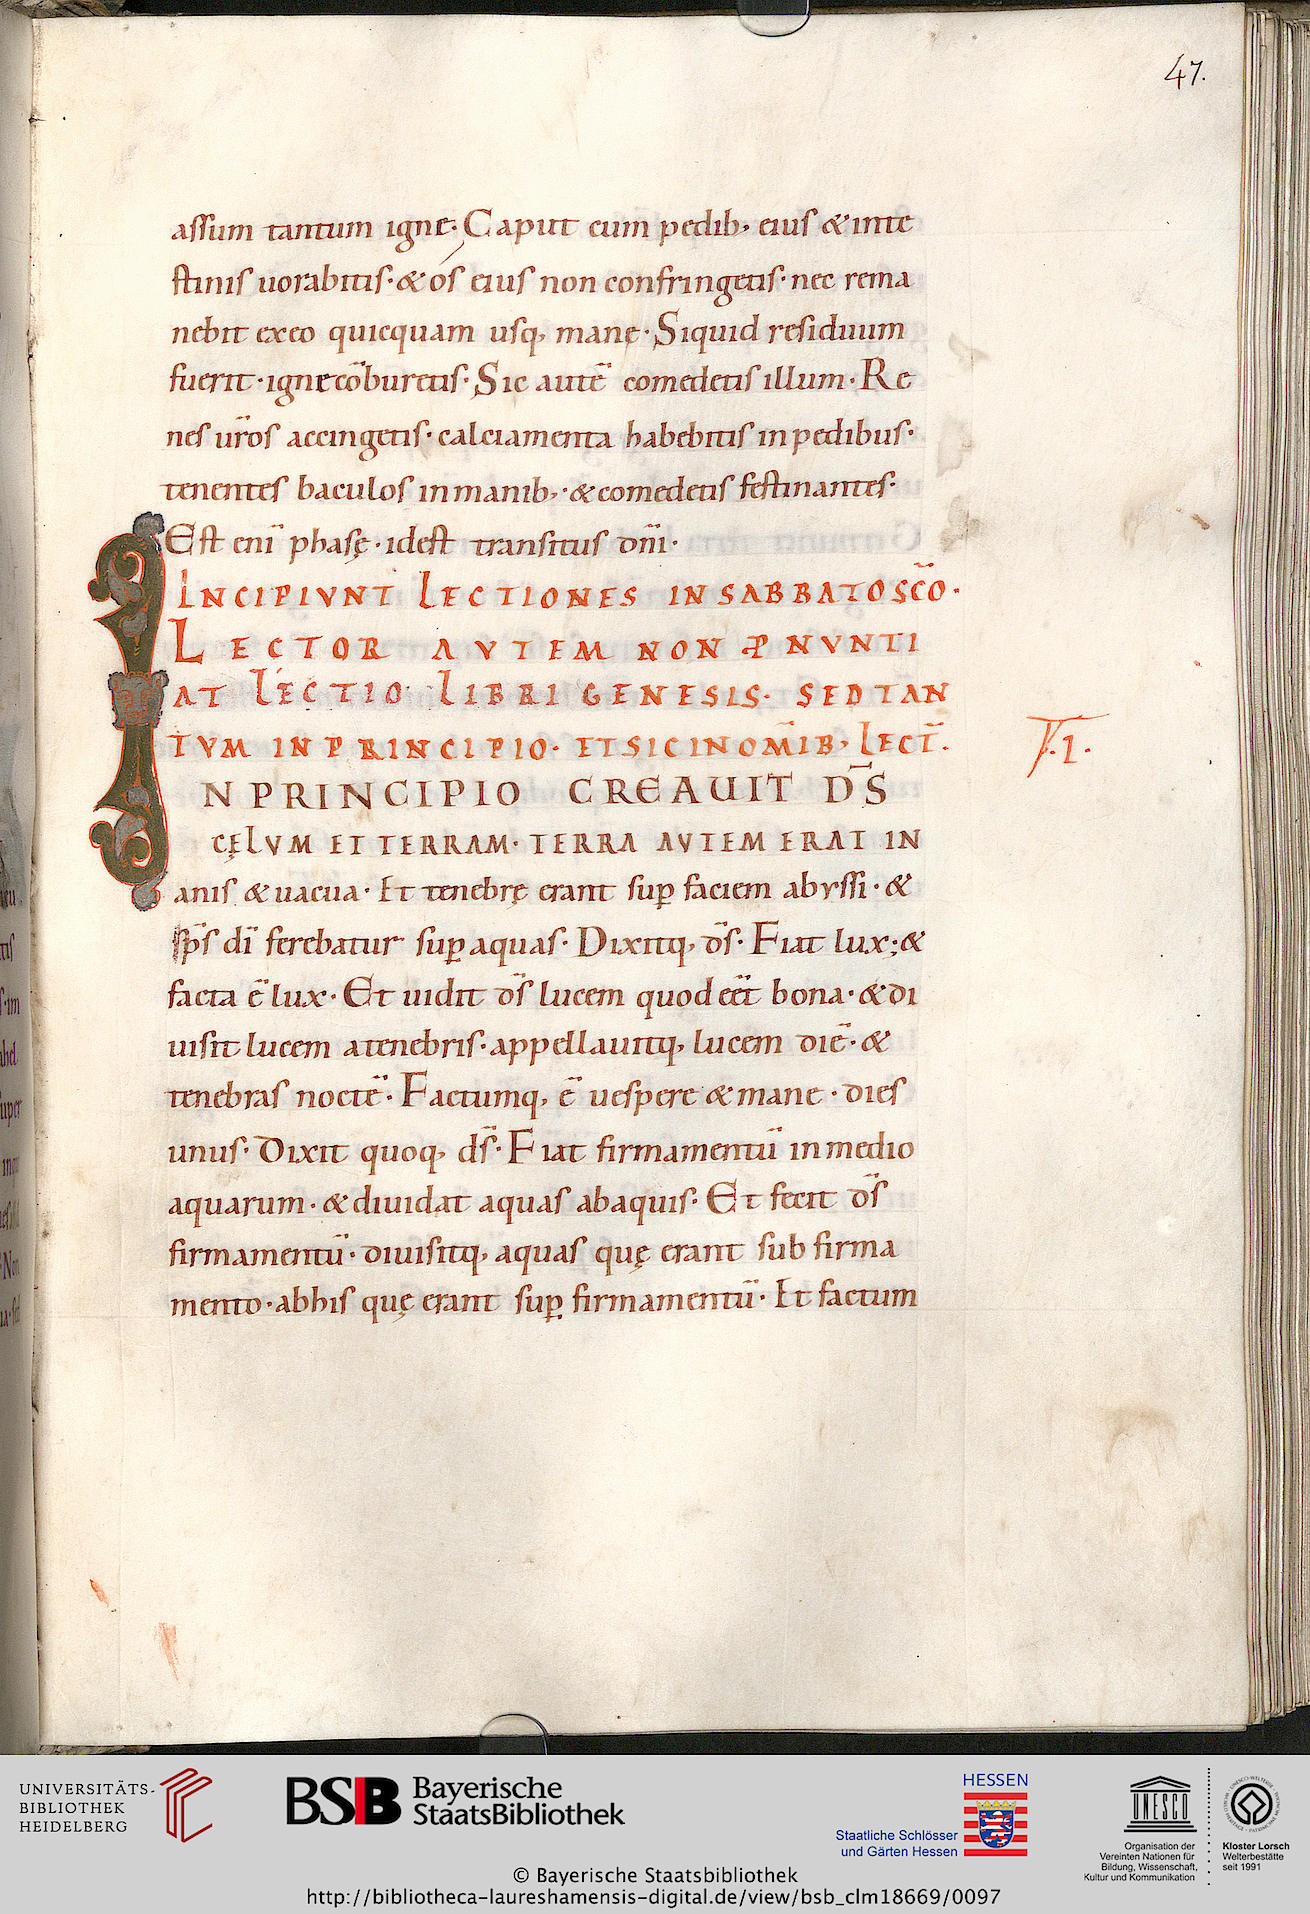 47.
assum tantum igne. Caput cum pedib; eius & inte
stinis uorabitis. & os eius non confringetis. nec rema
nebit exeo quicquam usq; mane. Siquid residuum
fuerit. igne cōburetis. Sic autē comedetis illum. Re
nes ur̄os accingetis. calciamenta habebitis in pedibus.
tenentes baculos in manib;. & comedetis festinantes.
Est eni̅ phasę. id est transitus dn̄i.
INCIPIUNT LECTIONES IN SABBATO SCŌ.
LECTOR AUTEM NON P̱NUNTI
AT LECTIO LIBRI GENESIS. SED TAN
TUM IN PRINCIPIO. ET SIC IN OMĪB; LECT̄.
T. I.
IN PRINCIPIO CREAUIT DS̄
CĘLUM ET TERRAM. TERRA AUTEM ERAT IN
anis & uacua. Et tenebrę erant sup̱ faciem abyssi. &
sp̄s dī ferebatur sup̱ aquas. Dixitq; ds̄. Fiat lux; &
facta ē lux. Et uidit ds̄ lucem quod eēt bona. & di
uisit lucem a tenebris. appellauitq; lucem diē. &
tenebras noctē. Factumq; ē uespere & mane. dies
unus. Dixit quoq; ds̄. Fiat firmamentū in medio
aquarum. & diuidat aquas ab aquis. Et fecit ds̄
firmamentū. diuisitq; aquas quę erant sub firma
mento. ab his quę erant sup̱ firmamentū. Et factum
UNIVERSITÄTS-
BIBLIOTHEK
HEIDELBERG
BSB Bayerische
StaatsBibliothek
HESSEN
Staatliche Schlösser
und Gärten Hessen
UNESCO
Organisation der
Vereinten Nationen für
Bildung, Wissenschaft,
Kultur und Kommunikation
Kloster Lorsch
Welterbestätte
seit 1991
© Bayerische Staatsbibliothek
http://bibliotheca-laureshamensis-digital.de/view/bsb_clm18669/0097